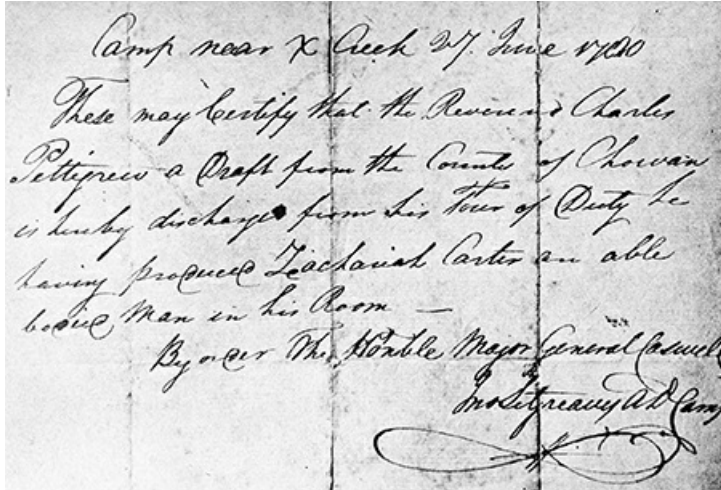 Camp near X Creek 27. June 1780
These may Certify that the Reverend Charles
Pettigrew a Draft from the County of Chowan
is hereby discharged from his Tour of Duty he
having produced Zachariah Carter an able
bodied Man in his Room —
By order The Honble Major General Caswell
Jno Sitgreaves AD Camp